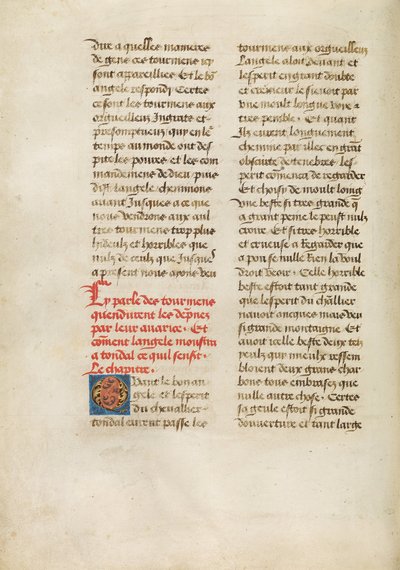 dire a quelles manieres
de gens ces tourmens icy
sont appareillies Et le bō
angele respondy Certes
ce sont les tourmens aux
orgueilleux Ingrats et
presomptueux qui en le
temps au monde ont des
pite les poures et les com
mandemens de dieu puis
dist langele cheminons
auant Jusques a ce que
nous vendrons aux aul
tres tourmens trop plus
hideulx et horribles que
nulz de ceulx que Jusques
a present nous ayons veu
Cy parle des tourmens
quendurent les dāpnes
par leur auarice . Et
cōment langele monstra
a tondal ce quil sensist .
Le chapitre .
Quant le bon an
gele et lesperit
du cheualier
tondal eurent passe les
tourmens aux orgueilleux
Langele aloit deuant et
lesperit en grant doubte
et cremeur le sieuoit par
vne moult longue voie et
tres penible . Et quant
Ilz eurent longuement
chemine par illec en grant
obscurte de tenebres les
perit cōmenca de regarder
Et choisi de moult loing
vne beste si tres grande q̄
a grant peine le peust nulz
croire Et si tres horrible
et crueuse a Regarder que
a pou se nulle Rien la voul
droit veoir . Celle horrible
beste estoit tant grande
que lesperit du chl̄lier
nauoit oncques mais veu
si grande montaigne Et
auoit icelle beste deux tels
yeulx qui mieulx ressem
bloient deux grans char
bons tous embrases que
nulle autre chose . Certes
sa geule estoit si grande
douuerture et tant large